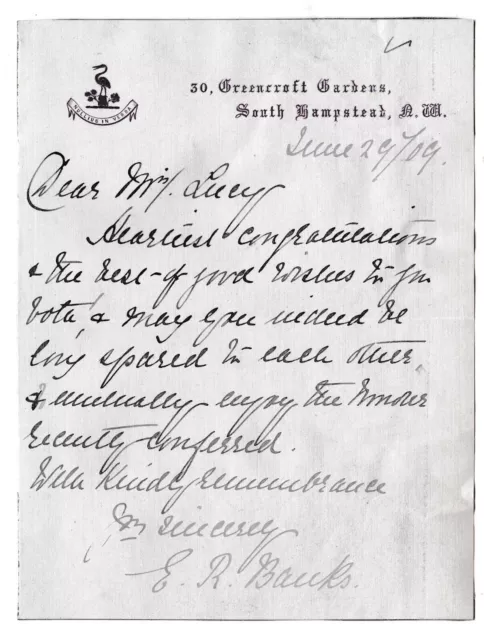 NULLIUS IN VERBA
30, Greencroft Gardens,
South Hampstead, N.W.
June 29/09.
Dear Mrs. Lucy
Heartiest congratulations
& the best of good wishes to you
both, & may you indeed be
long spared to each other
& mutually enjoy the honour
recently conferred.
With kindly remembrance
Yrs sincerely
E. R. Banks.